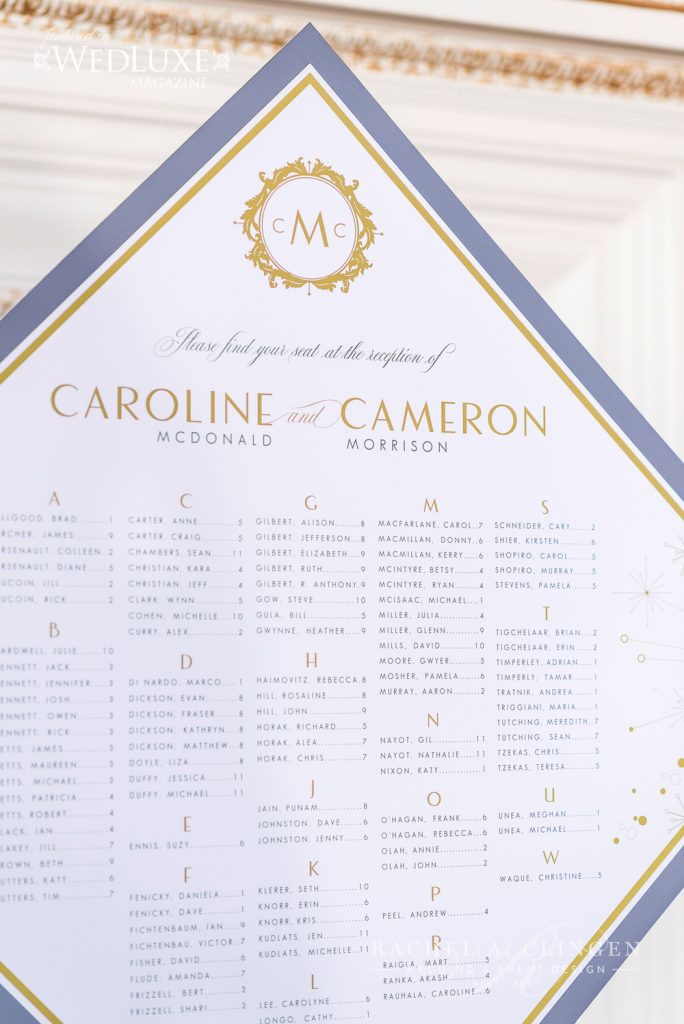 featured in
WEDLUXE
MAGAZINE
C M C
Please find your seat at the reception of
CAROLINE and CAMERON
MCDONALD MORRISON
A
LLGOOD, BRAD..........1
RCHER, JAMES..........9
RSENAULT, COLLEEN..2
RSENAULT, DIANE......5
UCOIN, JILL..........2
UCOIN, RICK..........2
B
ARDWELL, JULIE......10
ENNETT, JACK..........3
ENNETT, JENNIFER......3
ENNETT, JOSH..........3
ENNETT, OWEN..........3
ENNETT, RICK..........3
ETTS, JAMES..........3
ETTS, MAUREEN........3
ETTS, MICHAEL........3
ETTS, PATRICIA.......4
ETTS, ROBERT.........4
LACK, IAN............4
LAKEY, JILL..........7
ROWN, BETH...........9
UTTERS, KATY.........6
UTTERS, TIM..........7
C
CARTER, ANNE..........5
CARTER, CRAIG.........5
CHAMBERS, SEAN.......11
CHRISTIAN, KARA.......4
CHRISTIAN, JEFF.......4
CLARK, WYNN...........5
COHEN, MICHELLE......10
CURRY, ALEX...........2
D
DI NARDO, MARCO.......1
DICKSON, EVAN.........8
DICKSON, FRASER.......8
DICKSON, KATHRYN......8
DICKSON, MATTHEW......8
DOYLE, LIZA...........8
DUFFY, JESSICA.......11
DUFFY, MICHAEL.......11
E
ENNIS, SUZY...........6
F
FENICKY, DANIELA......1
FENICKY, DAVE.........1
FICHTENBAUM, IAN......9
FICHTENBAU, VICTOR..7
FISHER, DAVID.........6
FLUDE, AMANDA.........7
FRIZZELL, BERT........3
FRIZZELL, SHARI.......3
G
GILBERT, ALISON.......8
GILBERT, JEFFERSON....8
GILBERT, ELIZABETH....9
GILBERT, RUTH.........9
GILBERT, R. ANTHONY.9
GOW, STEVE...........10
GULA, BILL............5
GWYNNE, HEATHER.......9
H
HAIMOVITZ, REBECCA8
HILL, ROSALINE........8
HILL, JOHN............9
HORAK, RICHARD........5
HORAK, ALEA...........7
HORAK, CHRIS..........7
J
JAIN, PUNAM...........8
JOHNSTON, DAVE........6
JOHNSTON, JENNY.......6
K
KLERER, SETH.........10
KNORR, ERIN...........6
KNORR, KRIS...........6
KUDLATS, JEN.........11
KUDLATS, MICHELLE..11
L
LEE, CAROLYNE.........6
LONGO, CATHY..........1
M
MACFARLANE, CAROL.7
MACMILLAN, DONNY..6
MACMILLAN, KERRY......6
MCINTYRE, BETSY.......4
MCINTYRE, RYAN........4
MCISAAC, MICHAEL......1
MILLER, JULIA.........4
MILLER, GLENN.........9
MILLS, DAVID.........10
MOORE, GWYER..........5
MOSHER, PAMELA........6
MURRAY, AARON.........2
N
NAYOT, GIL...........11
NAYOT, NATHALIE......11
NIXON, KATY...........1
O
O'HAGAN, FRANK........6
O'HAGAN, REBECCA......6
OLAH, ANNIE...........2
OLAH, JOHN............2
P
PEEL, ANDREW..........4
R
RAIGLA, MART..........5
RANKA, AKASH..........4
RAUHALA, CAROLINE...6
S
SCHNEIDER, CARY.......2
SHIER, KIRSTEN........6
SHOPIRO, CAROL........5
SHOPIRO, MURRAY.......5
STEVENS, PAMELA.......5
T
TIGCHELAAR, BRIAN...2
TIGCHELAAR, ERIN....2
TIMPERLEY, ADRIAN.....1
TIMPERLY, TAMAR.......1
TRATNIK, ANDREA.......1
TRIGGIANI, MARIA......1
TUTCHING, MEREDITH..7
TUTCHING, SEAN........7
TZEKAS, CHRIS.........5
TZEKAS, TERESA........5
U
UNEA, MEGHAN..........1
UNEA, MICHAEL.........1
W
WAQUE, CHRISTINE......5
RACHEL A. CLINGEN
EVENT DESIGN